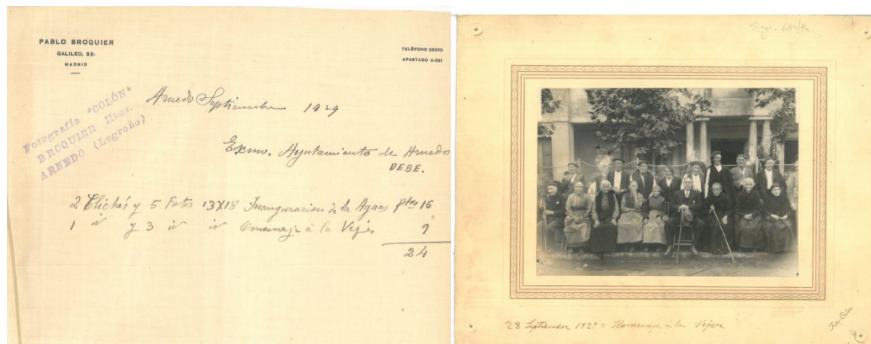 PABLO BROQUIER
GALILEO,
MADRID
TELÉFONO
APARTADO
Fotografía "COLÓN"
BROQUIER Hnos.
ARNEDO (Logroño)
Arnedo Septiembre 1929
Exmo. Ayuntamiento de Arnedo
DEBE.
2 Clichés y 5 Fotos 13X18 Inauguracion de la Aguas ptas
1 id y 3 id Omenaje a la Vejez 9
24
Sign.
28 Septiembre 1929 = Homenaje a la Vejez
Foto Colón